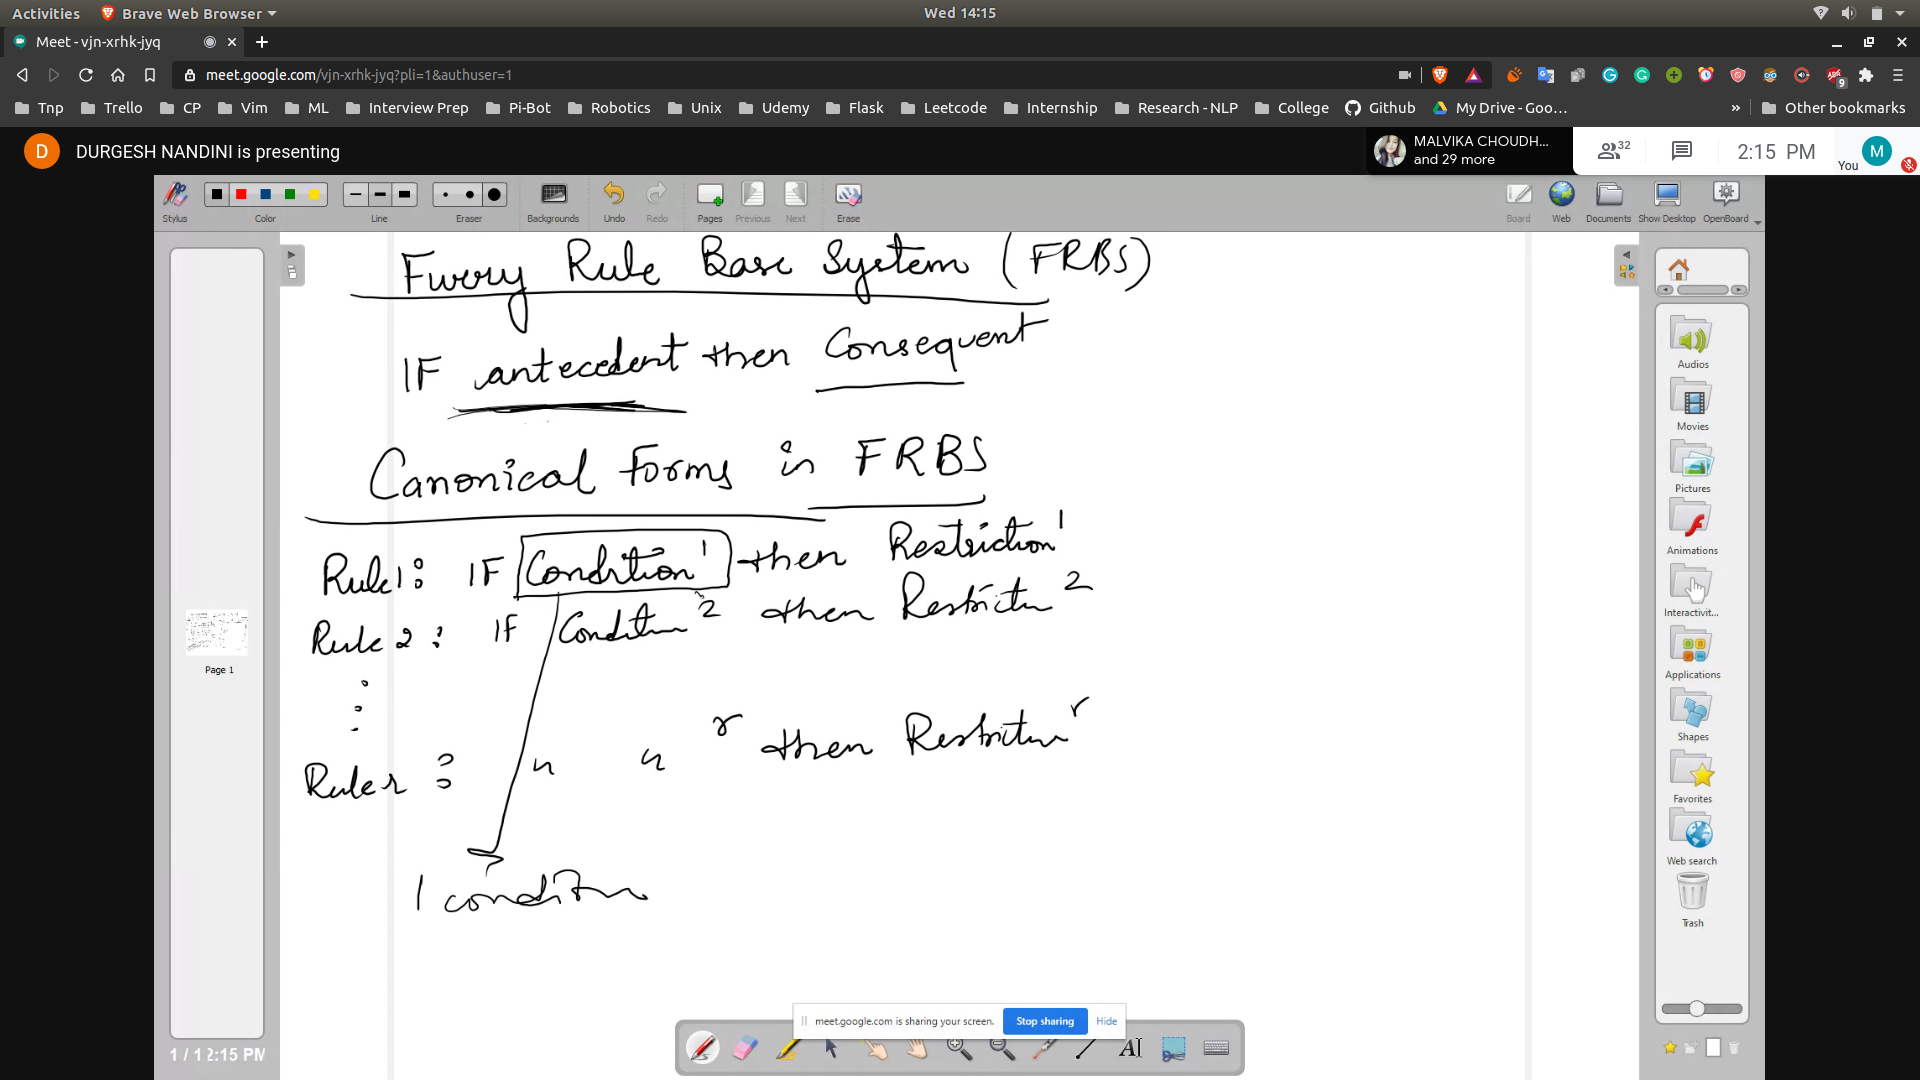 Activities Brave Web Browser Wed 14:15
Meet - vjn-xrhk-jyq
meet.google.com/vjn-xrhk-jyq?pli=1&authuser=1 9
Tnp Trello CP Vim ML Interview Prep Pi-Bot Robotics Unix Udemy Flask Leetcode Internship Research - NLP College Github My Drive - Goo... » Other bookmarks
D DURGESH NANDINI is presenting
MALVIKA CHOUDH...
and 29 more
32 2:15 PM You M
Stylus Color Line Eraser Backgrounds Undo Redo Pages Previous Next Erase Board Web Documents Show Desktop OpenBoard
Fuzzy Rule Base System (FRBS)
IF antecedent then Consequent
Canonical Forms in FRBS
Rule1: IF Condition 1 then Restriction 1
Rule 2: IF Condition 2 then Restriction 2
Rule r : " " r then Restriction r
1 condition
Page 1
1 / 1 2:15 PM
Audios
Movies
Pictures
Animations
Interactivit...
Applications
Shapes
Favorites
Web search
Trash
meet.google.com is sharing your screen. Stop sharing Hide